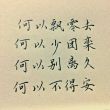 何以飘零去
何以少团栾
何以别离久
何以不得安